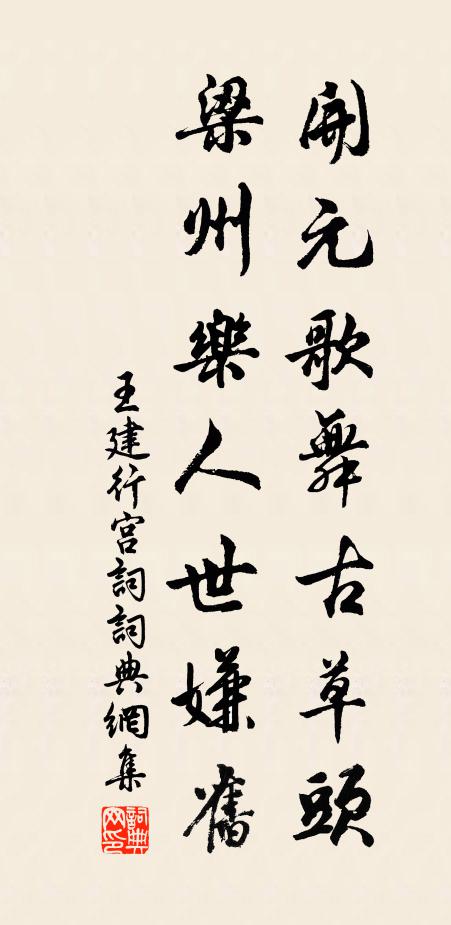 開元歌舞古草頭
梁州樂人世嫌舊
王建行宮詞詞典網集
詞典
网印